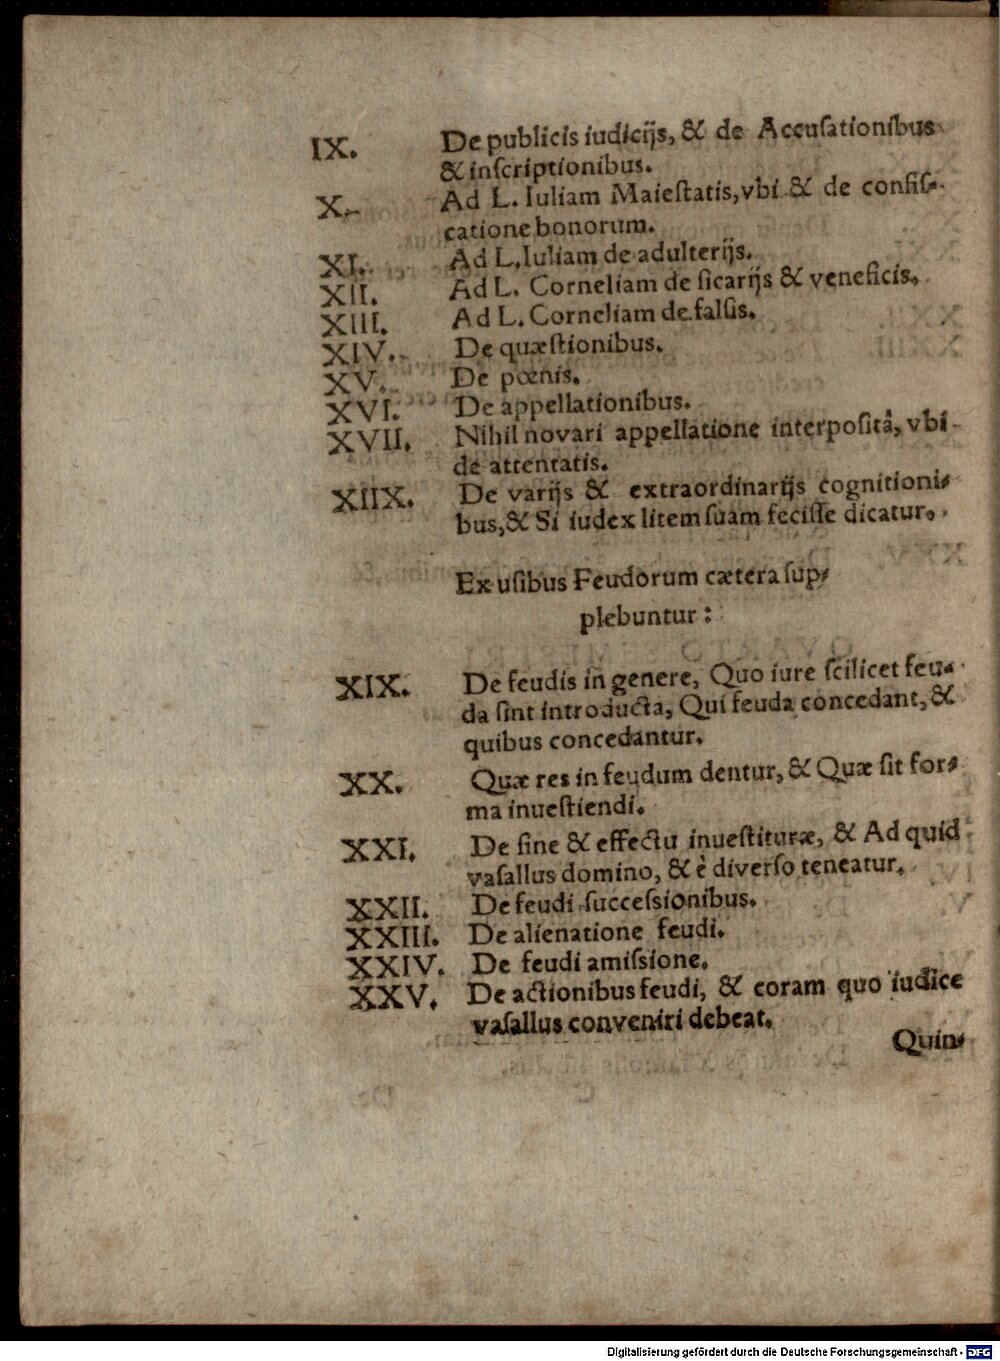 IX. De publicis iudicijs, & de Accusationibus
& inscriptionibus.
X. Ad L. Iuliam Maiestatis, vbi & de confis-
catione bonorum.
XI. Ad L. Iuliam de adulterijs.
XII. Ad L. Corneliam de sicarijs & veneficis.
XIII. Ad L. Corneliam de falsis.
XIV. De quæstionibus.
XV. De pœnis.
XVI. De appellationibus.
XVII. Nihil novari appellatione interpositâ, vbi
de attentatis.
XIIX. De varijs & extraordinarijs cognitioni-
bus, & Si iudex litem suam fecisse dicatur.
Ex usibus Feudorum cætera sup-
plebuntur:
XIX. De feudis in genere, Quo iure scilicet feu-
da sint introducta, Qui feuda concedant, &
quibus concedantur.
XX. Quæ res in feudum dentur, & Quæ sit for-
ma inuestiendi.
XXI. De fine & effectu inuestituræ, & Ad quid
vasallus domino, & è diverso teneatur.
XXII. De feudi successionibus.
XXIII. De alienatione feudi.
XXIV. De feudi amissione.
XXV. De actionibus feudi, & coram quo iudice
vasallus conveniri debeat.
Quin-
Digitalisierung gefördert durch die Deutsche Forschungsgemeinschaft - DFG